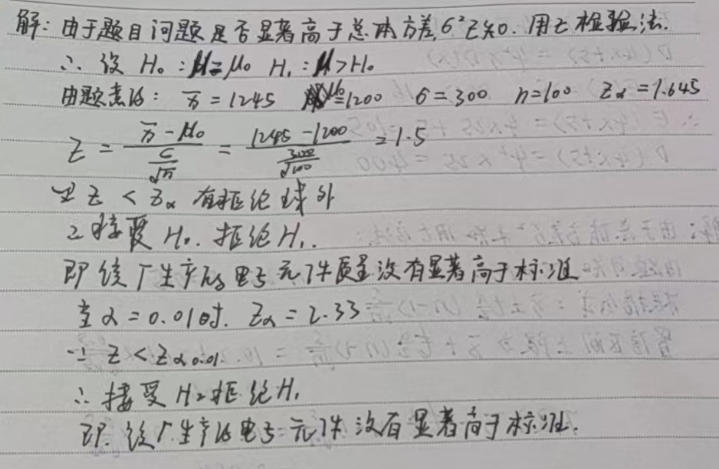 解: 由于题目问题是否显著高于总体方差σ²已知. 用Z检验法.
∴ 设 H₀: μ=μ₀ H₁: μ>H₀
由题意得: x̄=1245 μ₀=1200 σ=300 n=100 Zα=1.645
Z = (x̄-μ₀)/(σ/√n) = (1245-1200)/(300/√100) = 1.5
∵ Z < Zα 在拒绝域外
∴ 接受 H₀. 拒绝 H₁.
即该厂生产的电子元件质量没有显著高于标准
当 α=0.01时. Zα=2.33
∵ Z<Zα0.01
∴ 接受 H₀拒绝H₁
即. 该厂生产的电子元件没有显著高于标准.